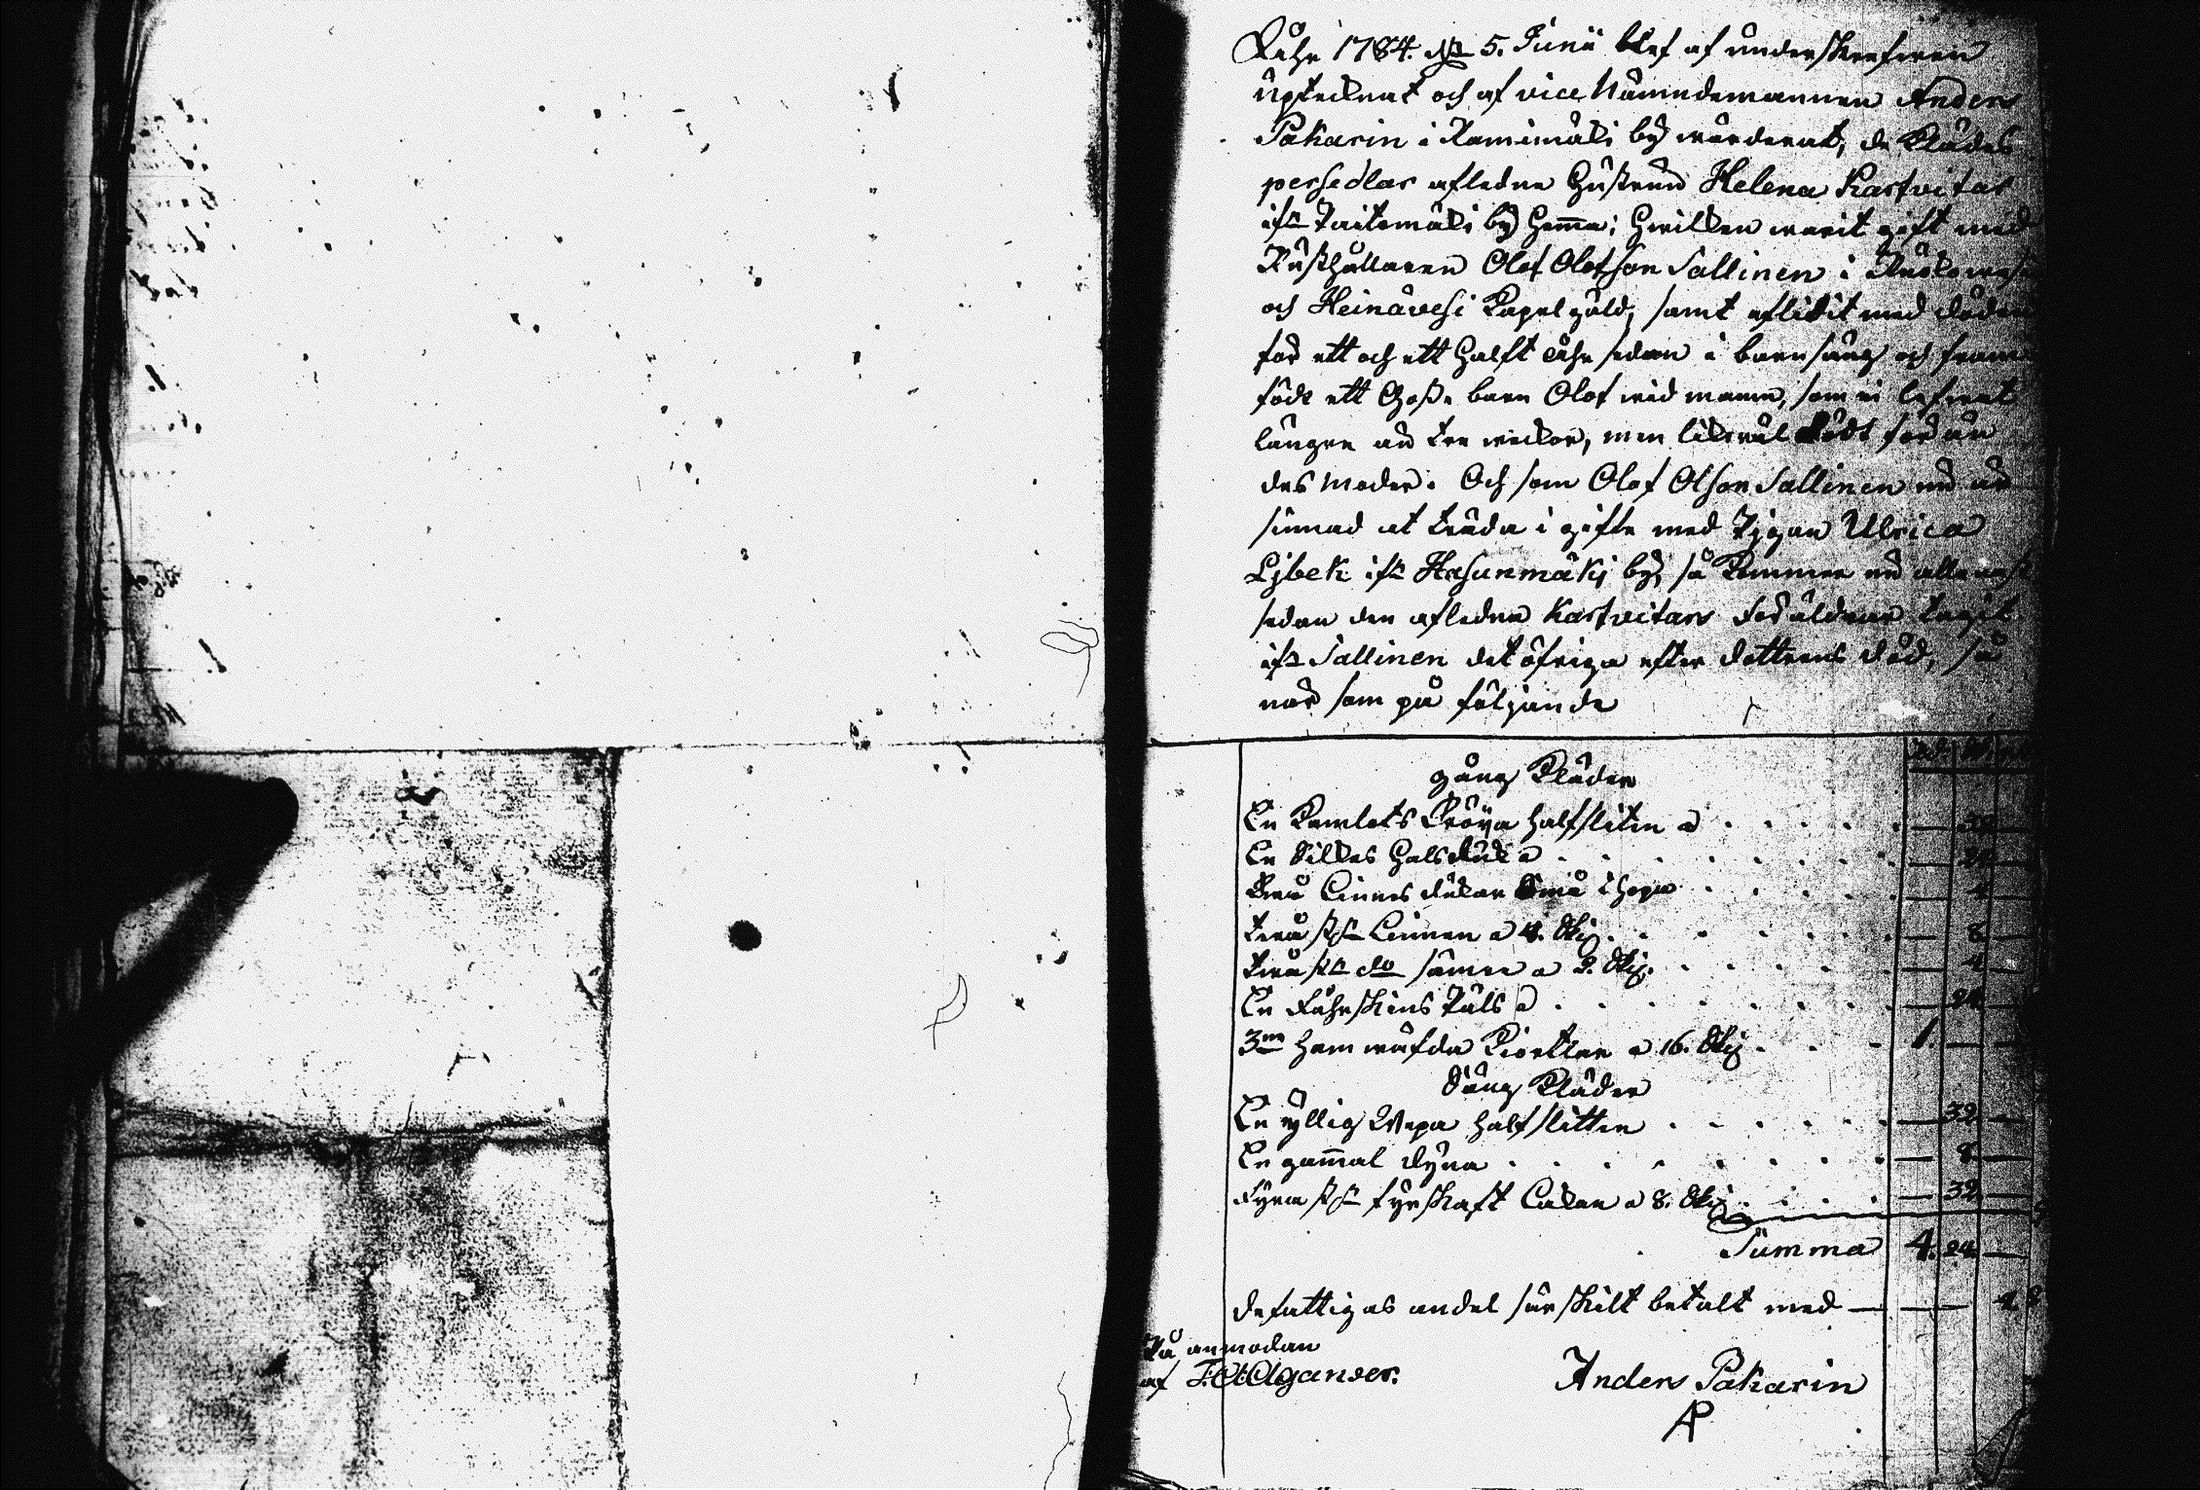 Åhr 1784. den 5. Junii blef af underskrefven
uptecknat och af vice Nämndemannen Anders
Pakarin i Ramimäki by wärderat, de Kläders
persedlar afledne Hustrun Helena Kastvitar
ifrån Taitemäki by hemma; hwilken warit gift med
Rusthållaren Olof Olofson Sallinen i
och Heinävesi Capelgäld, samt aflidit med döden
för ett och ett halft åhr sedan i barnsäng och fram
födt ett Gosse barn Olof wid namn, som ei lefwat
längre än tre weckor, men likwäl dödt för än
des moder. Och som Olof Olson Sallinen nu är
sinnad at träda i gifte med Pigan Ulrica
Lybek ifrån Hasunmäki by, så kommer nu
sedan den afledne Kastvitars Föräldrar tagit
ifrån Sallinen det öfriga efter dottrens död, så
när som på följande
gång Kläder
En Kamlots Tröya halfsliten a 32
En Silkes halsduk a 24
Två Linnes dukar små ihopa 4
Två st. Linnen a 4. skg. 8
Två st. do sämre a 2. skg. 4
En Fåhrskins Päls a 24
3ne hemwäfda Kiortlar a 16. skg 1.
Säng Kläder
En yllig Wepa halfslitten 32
En gammal dyna 8
Fyra st. fyrskaft Lakan a 8. skg 32
Summa 4. 24
De fattigas andel särskilt betalt med 4
På anmodan
af Algander.
Anders Pakarin
AP